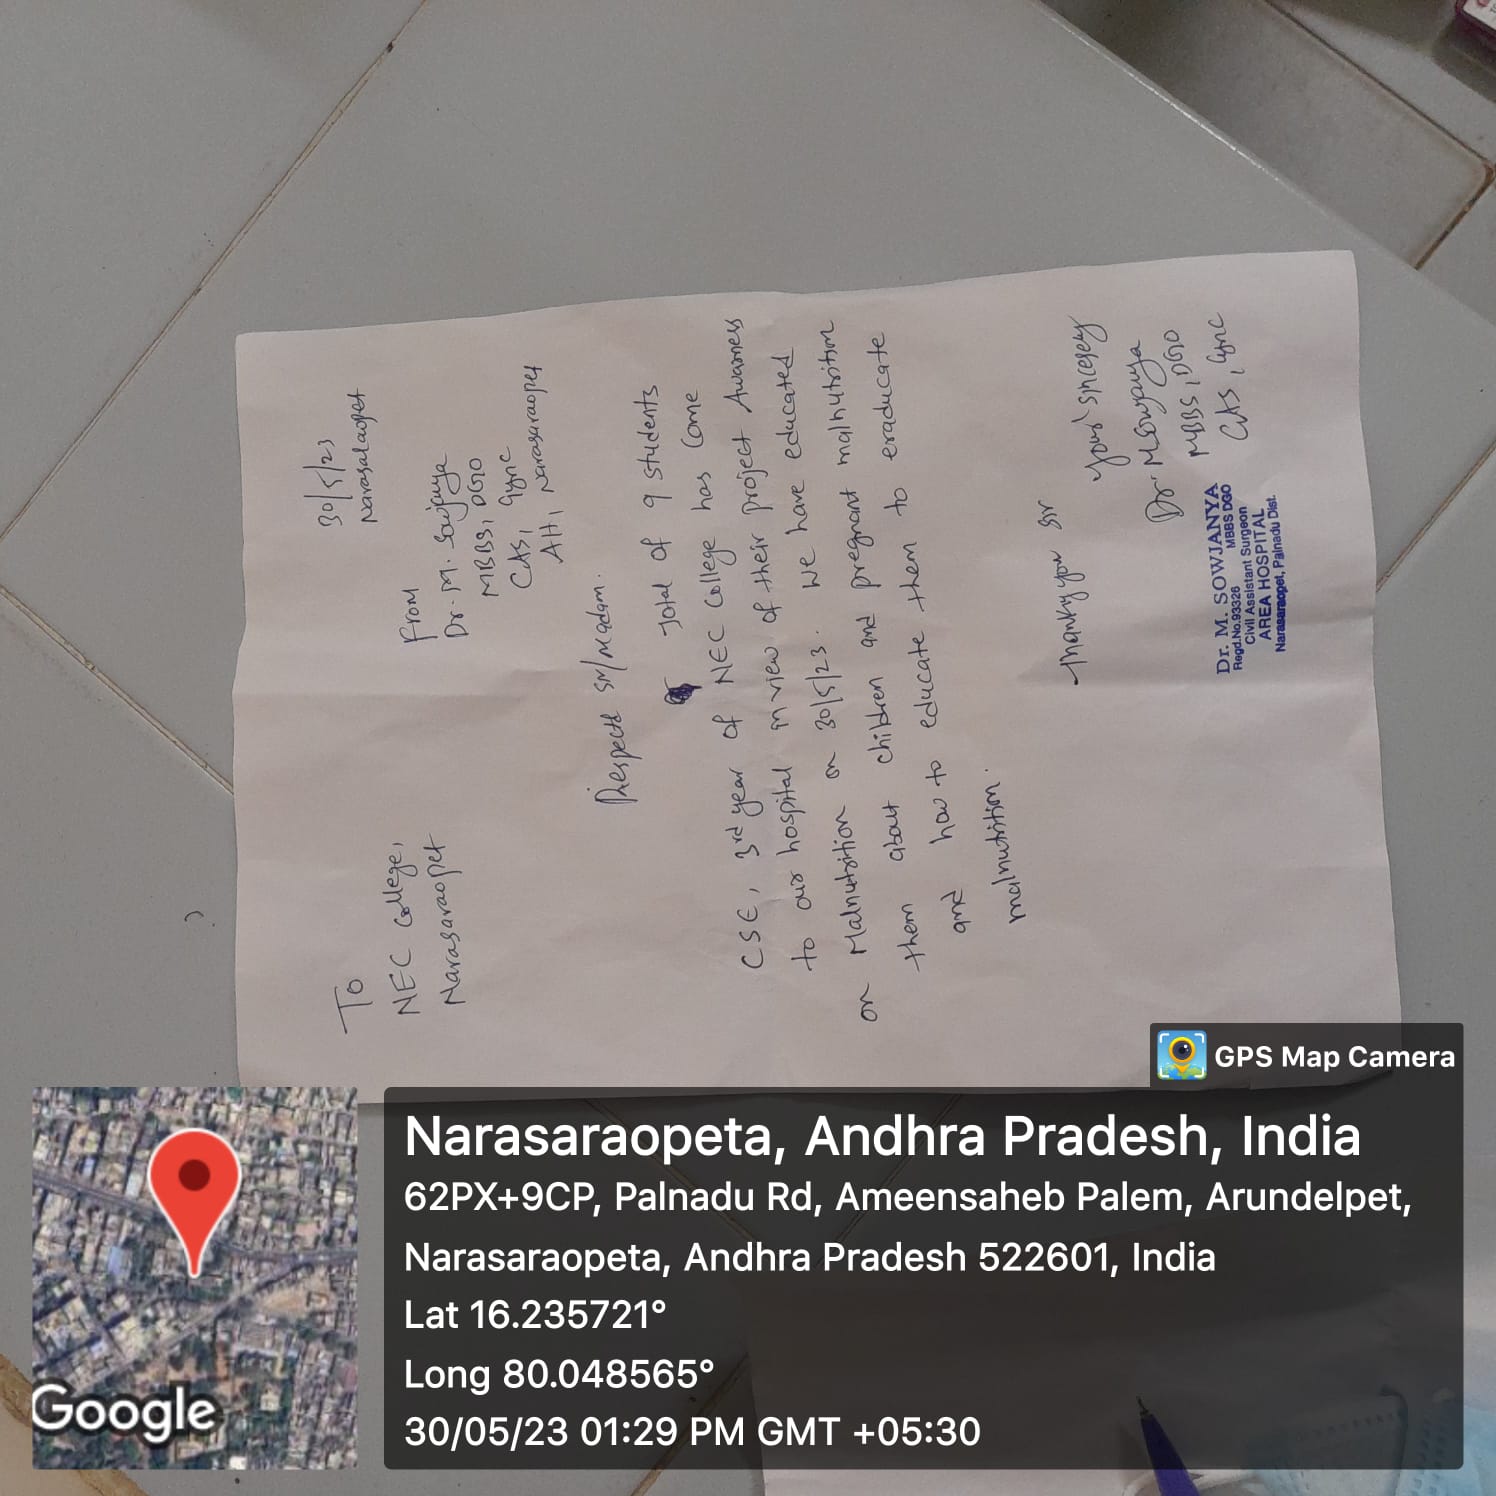 30/5/23
Narasalaopet
To
NEC College,
Narasaraopet
From
Dr. M. Sowjanya
MBBS, DGO
CAS, Gync
AH, Narasaraopet
Respectd Sir/Madam.
Total of 9 students
CSE, 3rd year of NEC College has come
to our hospital in view of their project Awarness
on Malnutrition on 30/5/23. We have educated
them about children and pregnant malnutrition
and how to educate them to eraducate
malnutrition.
Thankyou Sir
Your sincerey
Dr. M Sowjanya
MBBS, DGO
CAS, Gync
Dr. M. SOWJANYA
MBBS DGO
Regd.No.93326
Civil Assistant Surgeon
AREA HOSPITAL
Narasaraopet, Palnadu Dist.
GPS Map Camera
Narasaraopeta, Andhra Pradesh, India
62PX+9CP, Palnadu Rd, Ameensaheb Palem, Arundelpet,
Narasaraopeta, Andhra Pradesh 522601, India
Lat 16.235721°
Long 80.048565°
30/05/23 01:29 PM GMT +05:30
Google